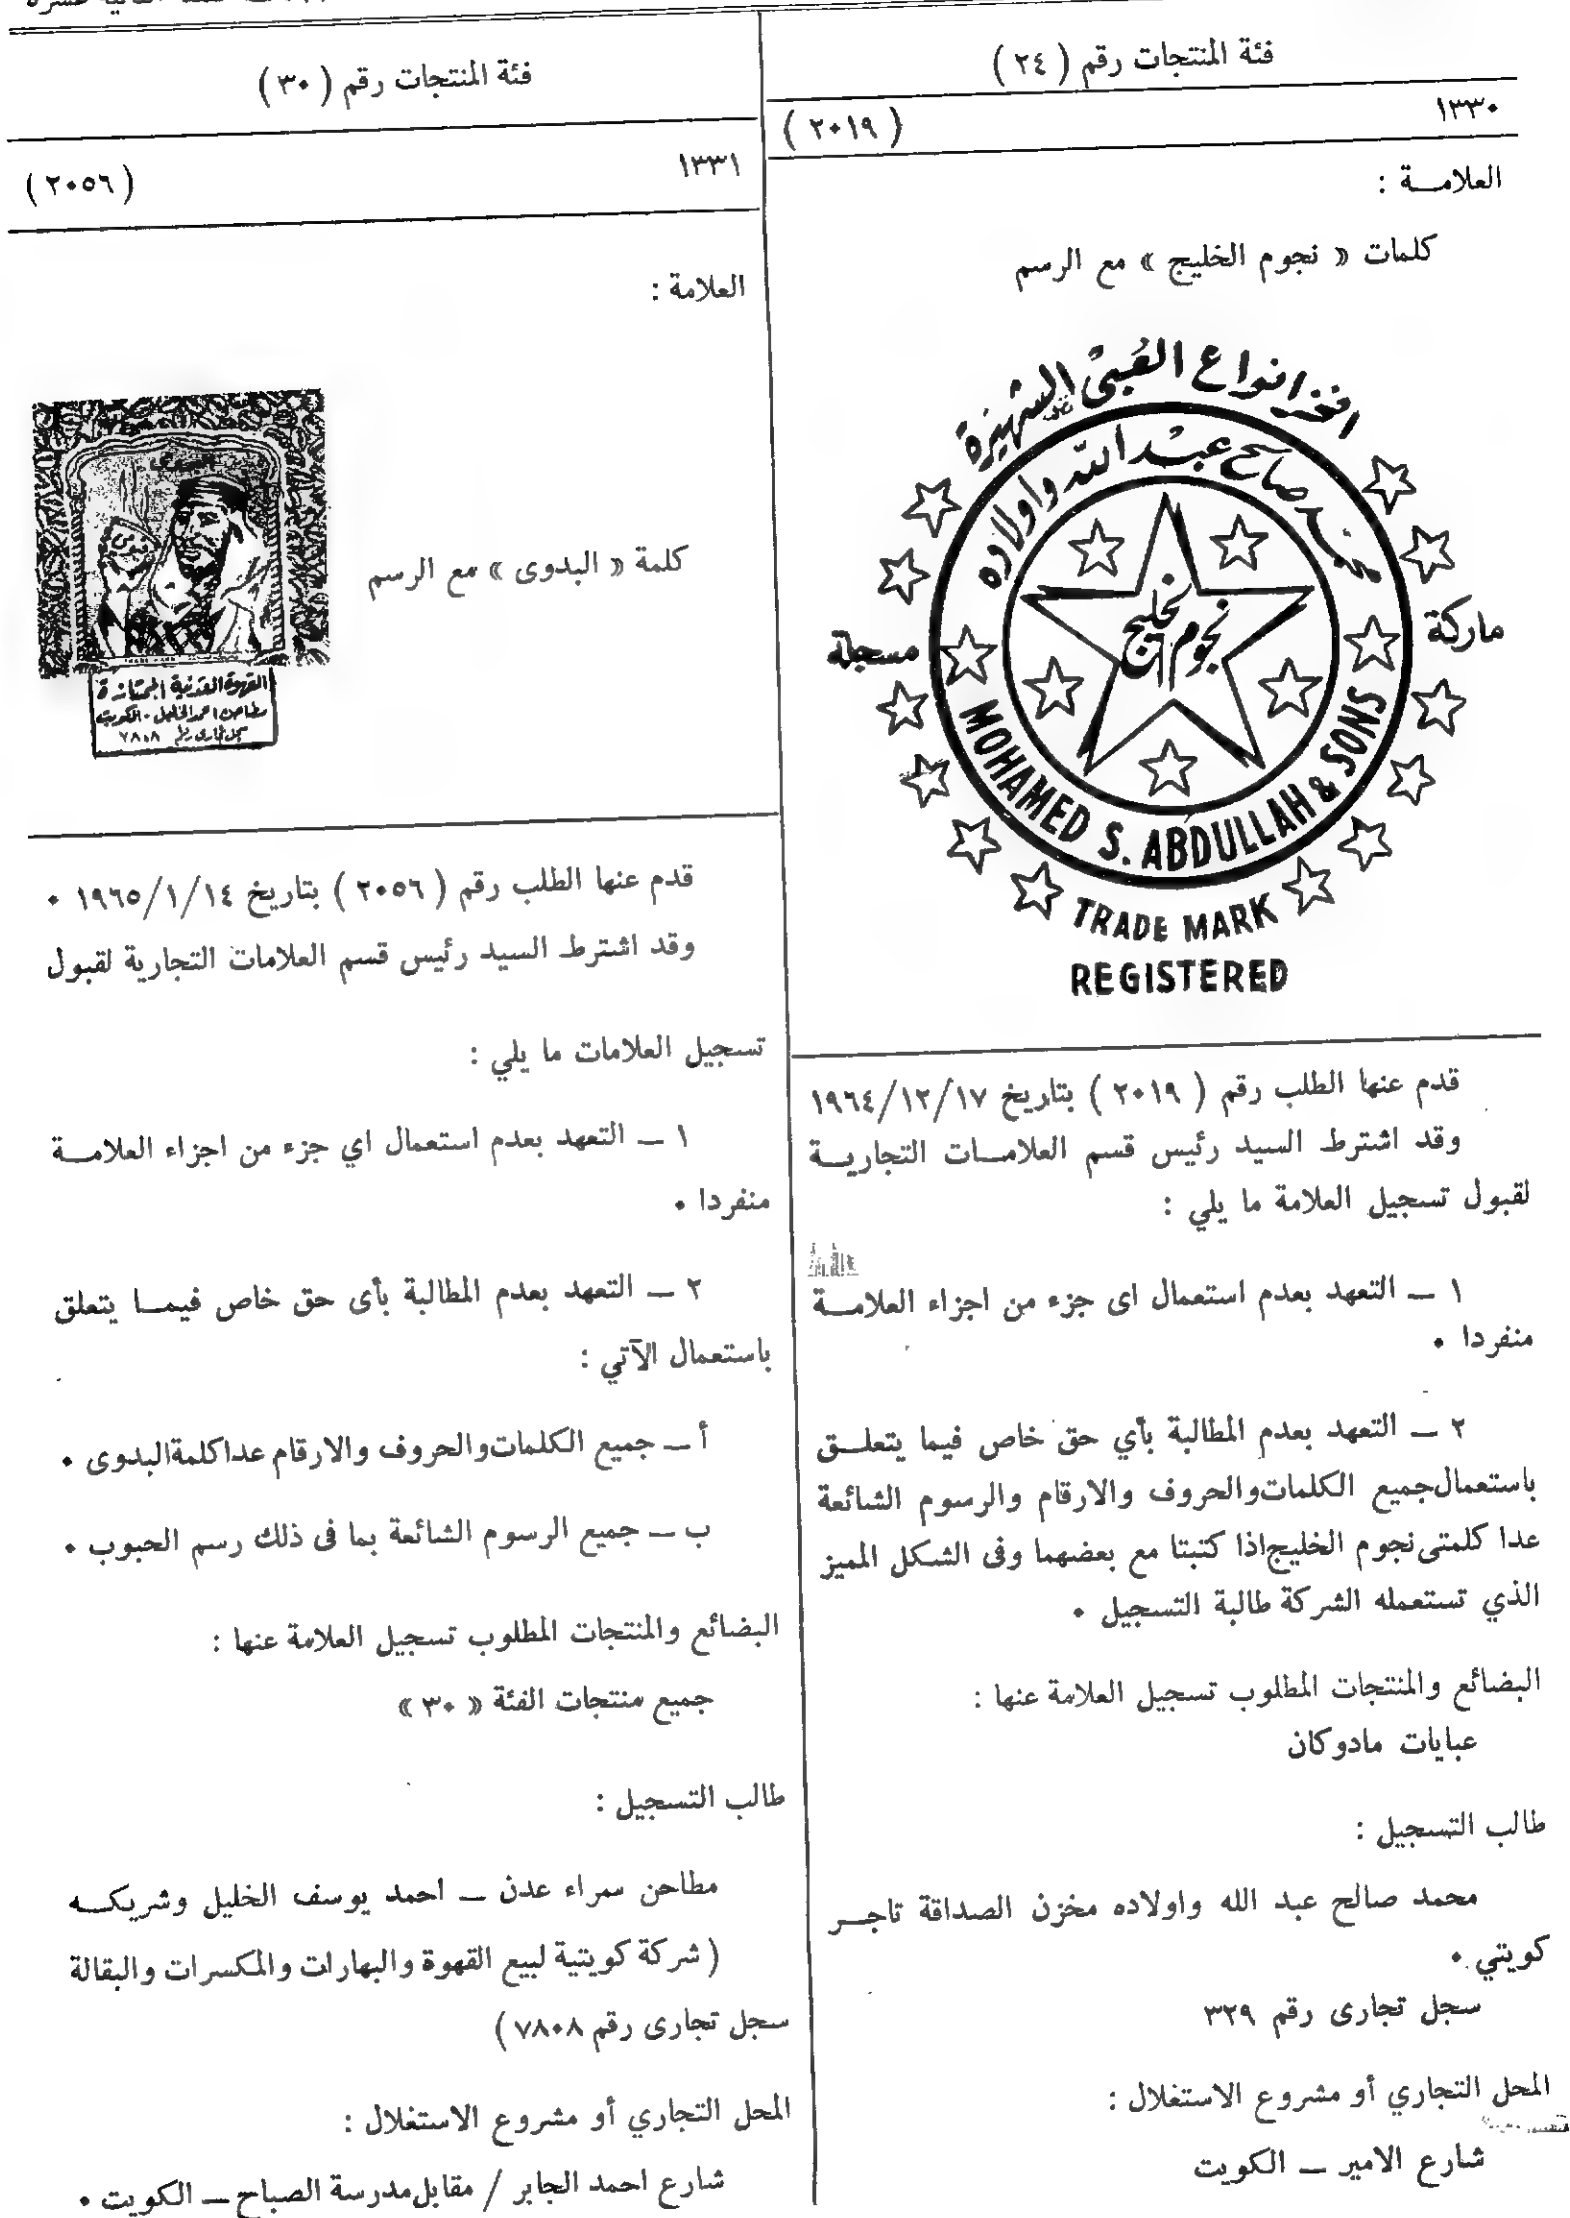 فئة المنتجات رقم ( ٢٤ )
١٣٣٠ ( ٢٠١٩ )
العلامـــة :
كلمات « نجوم الخليج » مع الرسم
افخر انواع العُبي الشهيرة
محمد صالح عبد الله واولاده
نجوم الخليج
ماركة
مسجلة
MOHAMED S. ABDULLAH & SONS
TRADE MARK
REGISTERED
قدم عنها الطلب رقم ( ٢٠١٩ ) بتاريخ ١٩٦٤/١٢/١٧
وقد اشترط السيد رئيس قسم العلامـــات التجاريـــة
لقبول تسجيل العلامة ما يلي :
١ ـــ التعهد بعدم استعمال اى جزء من اجزاء العلامـــة
منفردا ٠
٢ ـــ التعهد بعدم المطالبة بأي حق خاص فيما يتعلـــق
باستعمال جميع الكلمات والحروف والارقام والرسوم الشائعة
عدا كلمتى نجوم الخليج اذا كتبتا مع بعضهما وفى الشكل المميز
الذي تستعمله الشركة طالبة التسجيل ٠
البضائع والمنتجات المطلوب تسجيل العلامة عنها :
عبايات مادوكان
طالب التسجيل :
محمد صالح عبد الله واولاده مخزن الصداقة تاجـــر
كويتي ٠
سجل تجارى رقم ٣٢٩
المحل التجاري أو مشروع الاستغلال :
شارع الامير ـــ الكويت
فئة المنتجات رقم ( ٣٠ )
١٣٣١ ( ٢٠٥٦ )
العلامة :
كلمة « البدوى » مع الرسم
البدوى
TRADE MARK
القهوة العدنية الممتازة
مطاحن احمد الخليل - الكويت
سجل تجارى رقم ٧٨٠٨
قدم عنها الطلب رقم ( ٢٠٥٦ ) بتاريخ ١٩٦٥/١/١٤ ٠
وقد اشترط السيد رئيس قسم العلامات التجارية لقبول
تسجيل العلامات ما يلي :
١ ـــ التعهد بعدم استعمال اي جزء من اجزاء العلامـــة
منفردا ٠
٢ ـــ التعهد بعدم المطالبة بأى حق خاص فيمـــا يتعلق
باستعمال الآتي :
أ ـــ جميع الكلمات والحروف والارقام عدا كلمة البدوى ٠
ب ـــ جميع الرسوم الشائعة بما فى ذلك رسم الحبوب ٠
البضائع والمنتجات المطلوب تسجيل العلامة عنها :
جميع منتجات الفئة « ٣٠ »
طالب التسجيل :
مطاحن سمراء عدن ـــ احمد يوسف الخليل وشريكـــه
( شركة كويتية لبيع القهوة والبهارات والمكسرات والبقالة
سجل تجارى رقم ٧٨٠٨ )
المحل التجاري أو مشروع الاستغلال :
شارع احمد الجابر / مقابل مدرسة الصباح ـــ الكويت ٠